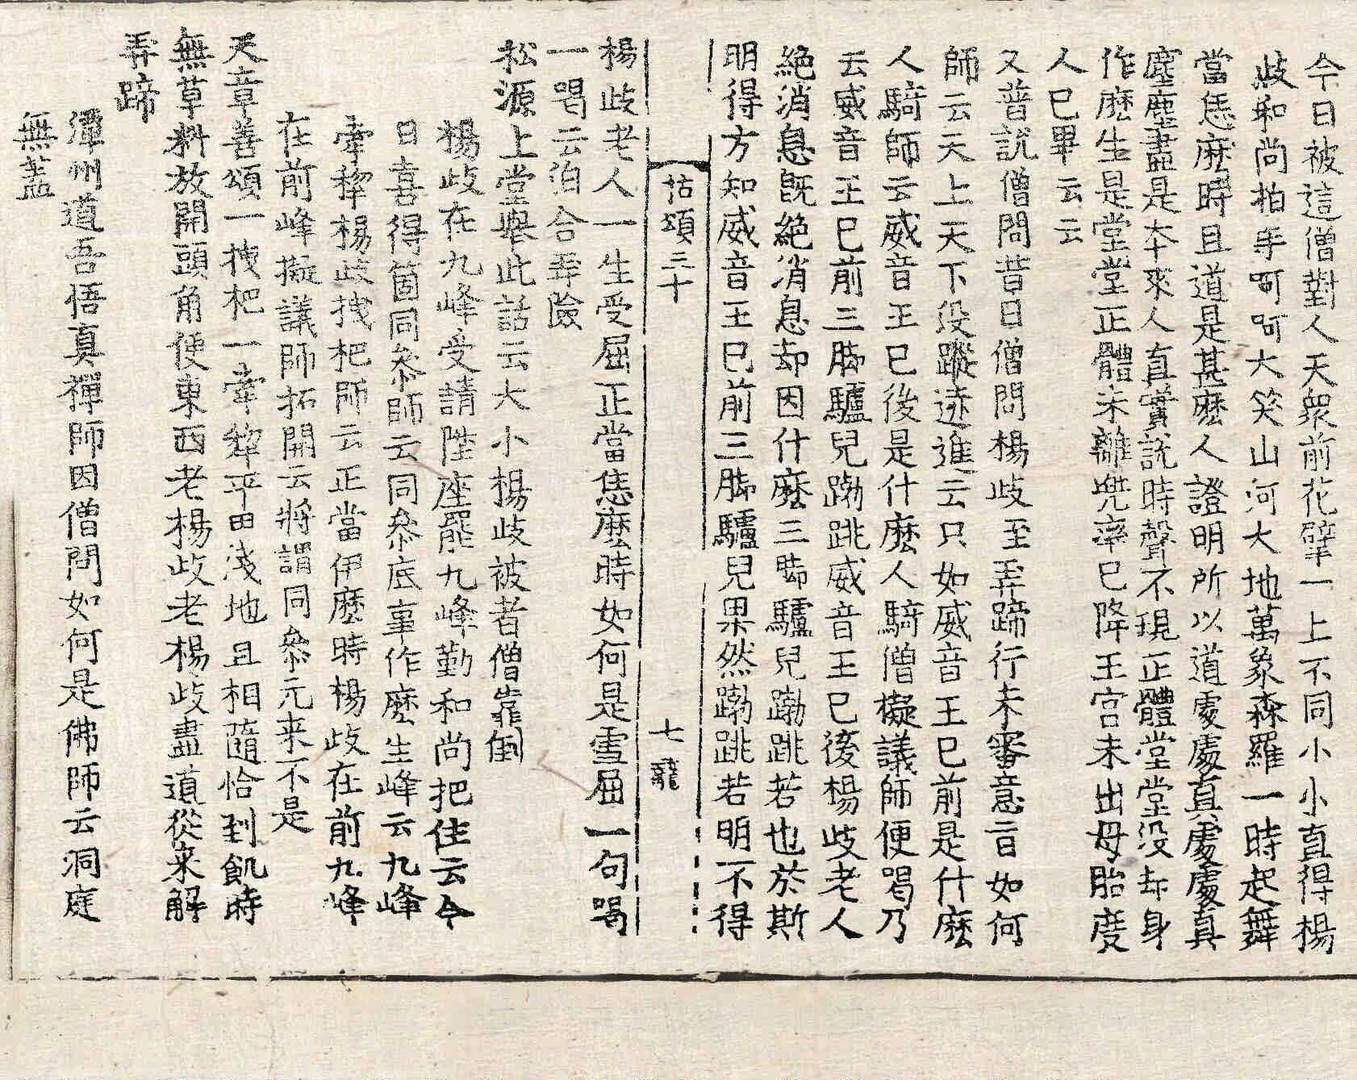 今日被這僧對人天衆前花擘一上不同小小直得楊
歧和尚拍手呵呵大笑山河大地萬象森羅一時起舞
當恁麽時且道是甚麽人證明所以道處處真處處真
塵塵盡是本來人直實說時聲不現正體堂堂没却身
作麽生是堂堂正體未離兠率已降王宮未出母胎度
人已畢云云
又普說僧問昔日僧問楊歧至弄蹄行未審意旨如何
師云天上天下没蹤迹進云只如威音王已前是什麽
人騎師云威音王已後是什麽人騎僧擬議師便喝乃
云威音王已前三脚驢兒跳跳威音王已後楊歧老人
絶消息旣絶消息却因什麽三脚驢兒跳跳若也於斯
明得方知威音王已前三脚驢兒果然跳跳若明不得
拈頌三十　七　龍
楊歧老人一生受屈正當恁麽時如何是雪屈一句喝
一喝云泊合弄險
松源上堂舉此話云大小楊歧被者僧靠倒
楊歧在九峰受請陞座罷九峰勤和尚把住云今
日喜得箇同叅師云同叅底事作麽生峰云九峰
牽犂楊歧拽杷師云正當伊麽時楊歧在前九峰
在前峰擬議師拓開云將謂同叅元来不是
天章善頌一拽杷一牽犂平田淺地且相隨恰到飢時
無草料放開頭角便東西老楊歧老楊歧盡道從来解
弄蹄
潭州道吾悟真禪師因僧問如何是佛師云洞庭
無盖